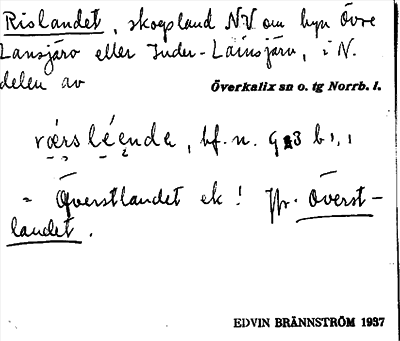 Rislandet, skogsland NV om byn Övre
Lansjärv eller Inder-Lainsjärv, i N.
delen av
Överkalix sn o. tg Norrb. l.
bf. n. G 23 b 1, 1
= Överstlandet ek! Jfr. Överst-
landet.
EDVIN BRÄNNSTRÖM 1937